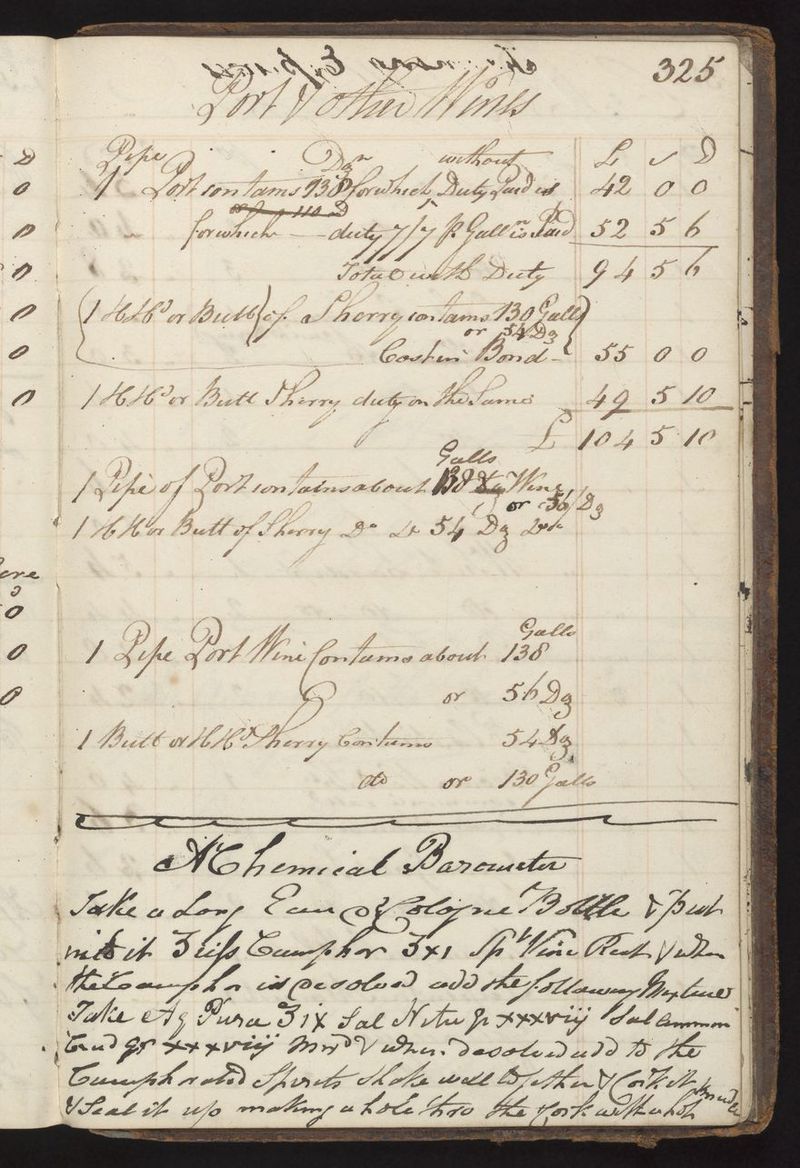 325
Port & other Wines
Pipe Dzn without £ s D
1 Port contains 138 for which Duty Paid is 42 0 0
for which — duty 7/7 pr Galln is Paid 52 5 6
Total with Duty 94 5 6
1 HHd or Butt of Sherry contains 130 Galls
or 54 Dz
Cost in Bond — 55 0 0
1 HHd or Butt Sherry duty on the Same 49 5 10
£ 104 5 10
Galls
1 Pipe of Port contains about 138 Wine
or 56 Dz
1 HH or Butt of Sherry Do Do 54 Dz
Galls
1 Pipe Port Wine Contains about 138
or 56 Dz
1 Butt or HHd Sherry Contains 54 Dz
do or 130 Galls
A Chemical Barometer
Take a Long Eau de Cologne Bottle & put
into it ʒiiſs Camphor ʒxi Spt Wine Rect & when
the Camphor is desolved add the following Mixture
Take Aq Pura ʒix Sal Nitre gr xxxviij Sal Ammon
Crud gr xxxviij Mixd & when desolved add to the
Camphorated Spirits Shake well together & Cork it
& Seal it up making a hole thro the Cork with a hot